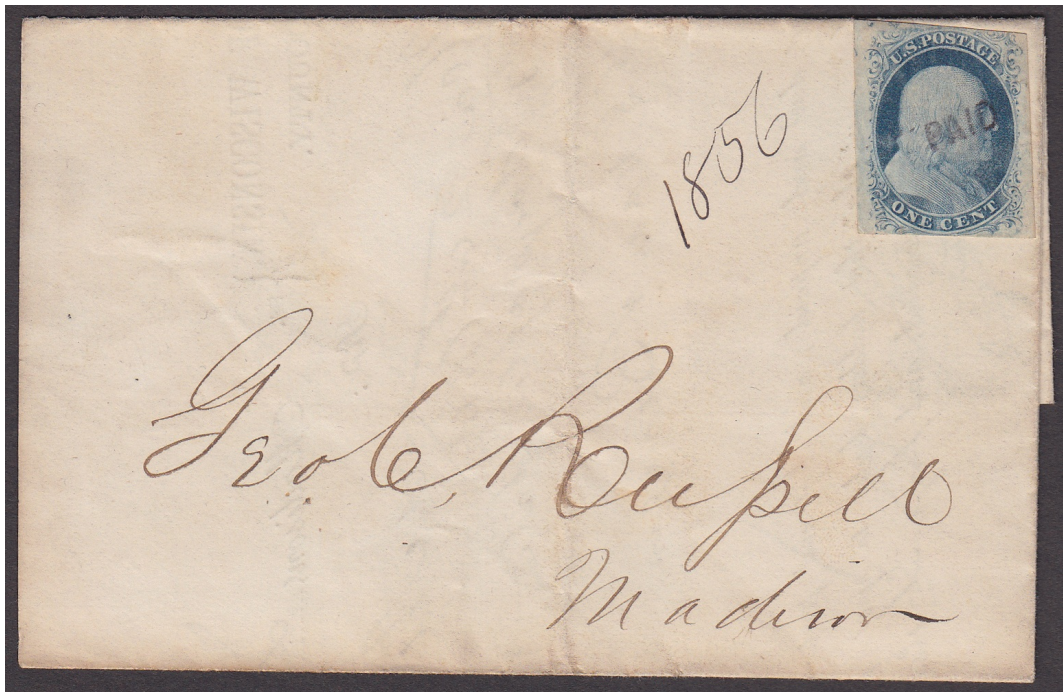 U.S. POSTAGE
PAID
ONE CENT
1856
Geo C. Russell
Madison